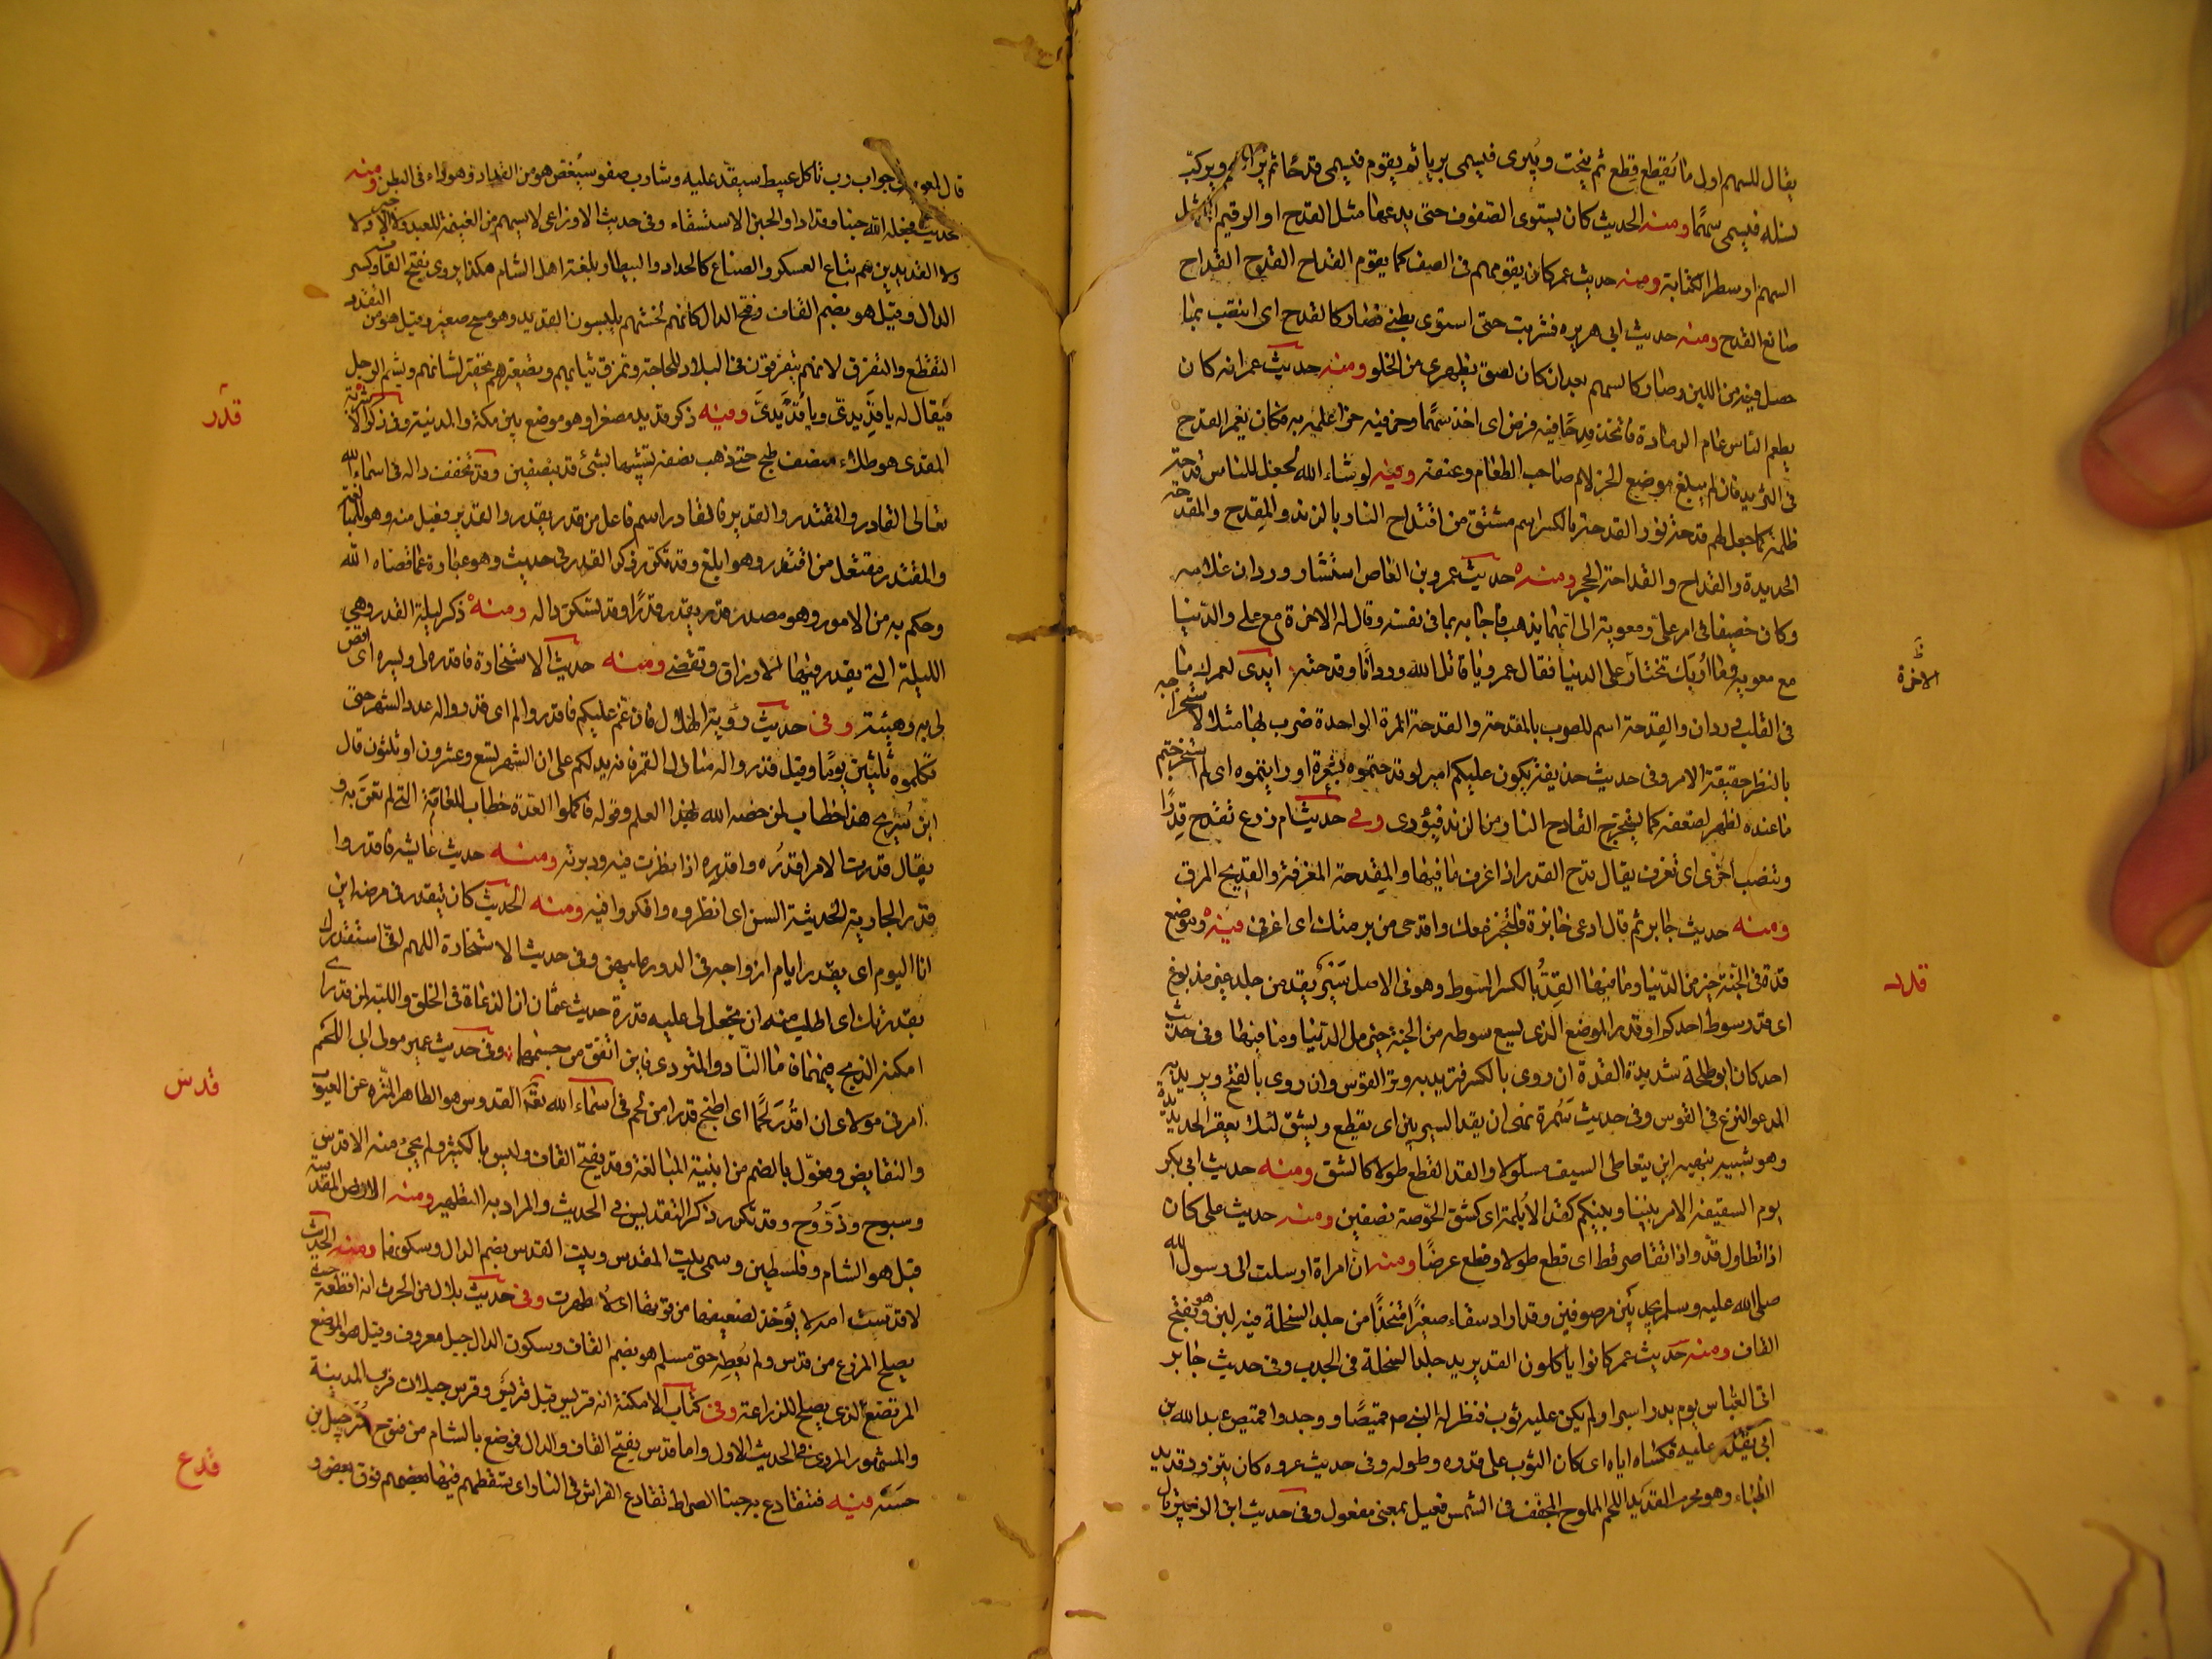 يقال للسهم اول ما يقطع قطع ثم ينحت ويبرى فيسمى بريا ثم يقوم فيسمى قدحا ثم يراش ويركب
نصله فيسمى سهما ومنه الحديث كان يسوى الصفوف حتى يدعها مثل القدح او الرقيم اى مثل
السهم او سطر الكتابة ومنه حديث عمر كان يقومهم فى الصف كما يقوم القداح القدح القداح
صانع القدح ومنه حديث ابى هريره فشربت حتى استوى بطنى فصار كالقدح اى انتصب بما
حصل فيه من اللبن وصار كالسهم بعد ان كان لصق بظهرى من الخلو ومنه حديث عمر انه كان
يطعم الناس عام الرمادة فاتخذ قدحا فيه فرض اى اخذ سهما وحز فيه حزا علمه به فكان يغمز القدح
فى الثريد فان لم يبلغ موضع الحز لام صاحب الطعام وعنفه وفيه لو شاء الله لجعل للناس قدحة
ظلمة كما جعل لهم قدحة نور القدحة بالكسر اسم مشتق من اقتداح النار بالزند والمقدح والمقدحة
الحديدة والقداح والقداحة الحجر ومنه حديث عمرو بن العاص استشار وردان غلامه
وكان حصيفا فى امر على ومعوية الى ايهما يذهب فاجابه بما فى نفسه وقال له الاخرة مع على والدنيا
مع معويه وما اراك تختار على الدنيا فقال عمرو يا قاتل الله وردانا وقدحته ابدى لعمرك ما
الاخرة
فى القلب وردان والقدحة اسم للضرب بالمقدحة والقدحة المرة الواحدة ضرب بها مثلا لاستخراجه
بالنظر حقيقة الامر وفى حديث حذيفة يكون عليكم امير لو قدحتموه بشعرة اوريتموه اى لو استخرجتم
ما عنده لظهر لضعفه كما يستخرج القادح النار من الزند فيورى وفى حديث ام زرع تقدح قدرا
وتنصب اخرى اى تغرف يقال قدح القدر اذا غرف ما فيها والمقدحة المغرفة والقديح المرق
ومنه حديث جابر ثم قال ادعى خابزة فلتخبز معك واقدحى من برمتك اى اغرفى فيه وموضع
قدد
قده فى الجنة خير من الدنيا وما فيها القد بالكسر السوط وهو فى الاصل سير يقد من جلد غير مدبوغ
اى قدر سوط احدكم او قدر الموضع الذى يسع سوطه من الجنة خير من الدنيا وما فيها وفى حديث
احد كان ابو طلحة شديد القد ان روى بالكسر فيريد به وتر القوس وان روى بالفتح ويريد به
المد والنزع فى القوس وفى حديث سمرة نهى ان يقد السير بين اى يقطع ويشق لئلا يعقر الحديد يده
وهو شبيه بنهيه ان يتعاطى السيف مسلولا والقد القطع طولا كالشق ومنه حديث ابى بكر
يوم السقيفة الامر بيننا وبينكم كقد الابلمة اى كشق الخوصة نصفين ومنه حديث على كان
اذا تطاول قد واذا تقاصر قط اى قطع طولا وقطع عرضا ومنه ان امراة ارسلت الى رسول الله
صلى الله عليه وسلم بجديين مرضوفين وقد اراد سقاء صغيرا متخذا من جلد السخلة فيه لبن وهو بفتح
القاف ومنه حديث عمر كانوا ياكلون القد يريد جلد السخلة فى الجدب وفى حديث جابر
اتى العباس يوم بدر اسيرا ولم يكن عليه ثوب فنظر له النبى صم قميصا ووجدوا قميص عبد الله بن
ابى يقد عليه فكساه اياه اى كان الثوب على قدره وطوله وفى حديث عروه كان يتزود قديد
الظباء وهو محرم القديد اللحم المملوح المجفف فى الشمس فعيل بمعنى مفعول وفى حديث ابن الزبير قال
قال لمعوية فى جواب رب آكل عبيط سيقد عليه وشارب صفو سيغص هو من القداد وهو داء فى البطن ومنه
حديث فجعله الله حبنا وقدادا والحبن الاستسقاء وفى حديث الاوزاعى لا يسهم من الغنيمة للعبد ولا الاجير ولا
ولا القديديين هم تباع العسكر والصناع كالحداد والبيطار بلغة اهل الشام هكذا يروى بفتح القاف وكسر
الدال وقيل هو بضم القاف وفتح الدال كانهم لخستهم يلبسون القديد وهو مسح صغير وقيل هو من التقدد
التقطع والتفرق لانهم يتفرقون فى البلاد للحاجة وتمزق ثيابهم وتصغيرهم تحقير لشانهم ويشتم الرجل
فيقال له يا قديدى ويا قديدى ومنه ذكر قديد مصغرا وهو موضع بين مكة والمدينة وفى ذكر الاشربة
المقدى هو طلاء منصف طبخ حتى ذهب نصفه تشبيها بشئ قد بنصفين وقد تخفف داله فى اسماء الله
قدر
تعالى القادر والمقتدر والقدير فالقادر اسم فاعل من قدر يقدر والقدير فعيل منه وهو للمبالغة
والمقتدر مفتعل من اقتدر وهو ابلغ وقد تكرر ذكر القدر فى حديث وهو عبارة عما قضاه الله
وحكم به من الامور وهو مصدر قدر يقدر قدرا وقد تسكن داله ومنه ذكر ليلة القدر وهى
الليلة التى يقدر فيها الارزاق وتقضى ومنه حديث الاستخارة فاقدره لى ويسره اى اقض
لى به وهيئه وفى حديث رؤية الهلال فان غم عليكم فاقدروا له اى قدروا له عدد الشهر حتى
تكملوه ثلثين يوما وقيل قدروا له منازل القمر فانه يدلكم على ان الشهر تسع وعشرون او ثلثون قال
ابن سريج هذا خطاب لمن خصه الله بهذا العلم وقوله فاكملوا العدة خطاب للعامة التى لم تعن به و
يقال قدرت الامر اقدره واقدره اذا نظرت فيه ودبرته ومنه حديث عايشه فاقدروا
قدر الجارية الحديثة السن اى انظروه وافكروا فيه ومنه الحديث كان يتقدر فى مرضه اين
انا اليوم اى يقدر ايام ازواجه فى الدور عليهن وفى حديث الاستخارة اللهم انى استقدرك
بقدرتك اى اطلب منك ان تجعل لى عليه قدرة حديث عثمان ان الذكاة فى الحلق واللبة لمن قدر اى
امكنه الذبح فيهما فاما الناد والمتردى فاين اتفق من جسمهما وفى حديث عمير مولى ابى اللحم
امرنى مولاى ان اقدر لحما اى اطبخ قدرا من لحم فى اسماء الله تعه القدوس هو الطاهر المنزه عن العيوب
قدس
والنقايص وفعول بالضم من ابنية المبالغة وقد يفتح القاف وليس بالكثير ولم يجئ منه الا قدوس
وسبوح وذروح وقد تكرر ذكر التقديس فى الحديث والمراد به التطهير ومنه الارض المقدسة
قيل هو الشام وفلسطين وسمى بيت المقدس وبيت القدس بضم الدال وسكونها ومنه الحديث
لا قدست امة لا يؤخذ لضعيفها من قويها اى لا طهرت وفى حديث بلال بن الحرث انه اقطعه حيث
يصلح الزرع من قدس ولم يعطه حق مسلم هو بضم القاف وسكون الدال جبل معروف وقيل هو الموضع
المرتفع الذى يصلح للزراعة وفى كتاب الامكنة انه قريس قيل قريس وقرس جبلان قرب المدينة
والمشهور المروى فى الحديث الاول واما قدس بفتح القاف والدال فموضع بالشام من فتوح شرحبيل بن
حسنه فيه فتتقادع بهم جنبتا الصراط تقادع الفراش فى النار اى تسقطهم فيها بعضهم فوق بعض و
قدع